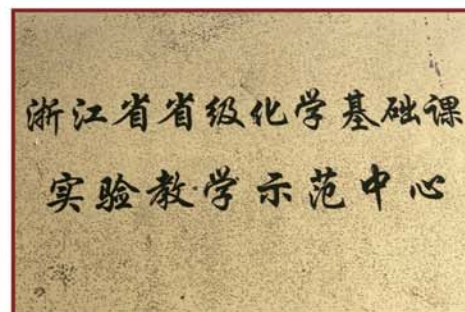 浙江省省级化学基础课
实验教学示范中心